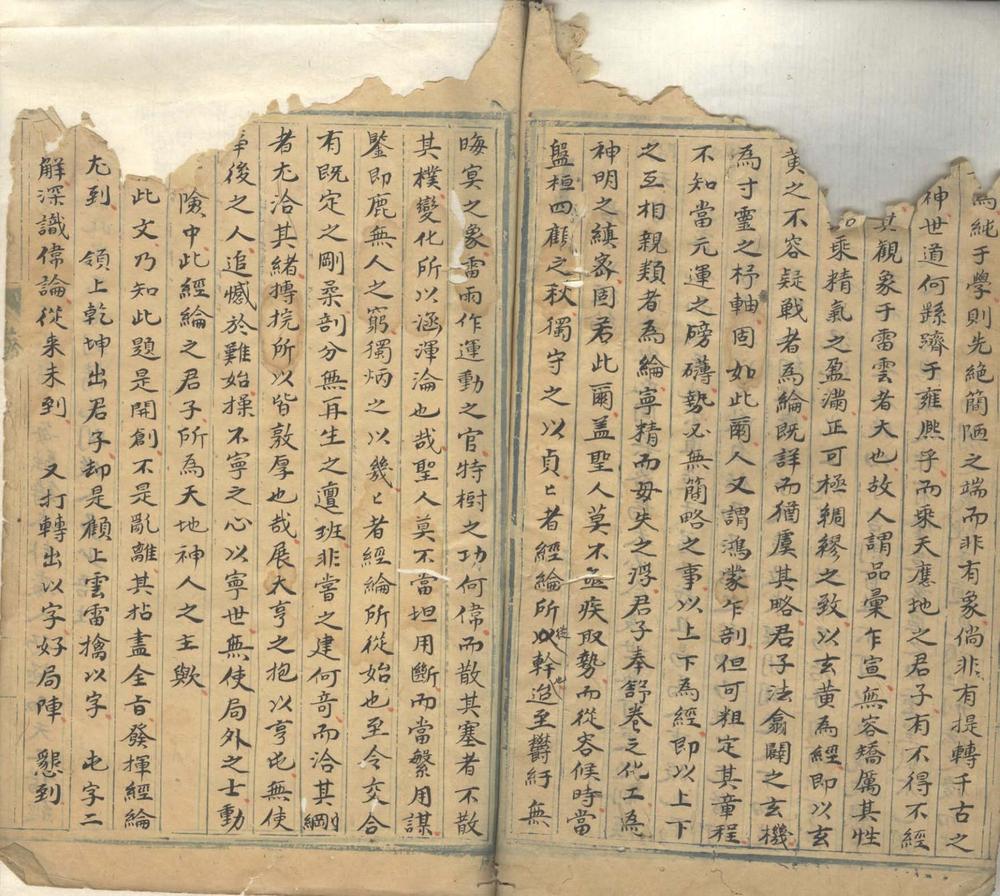 為純于學則先絕簡陋之端而非有象倘非有提轉千古之
神世道何繇躋于雍熙乎而乘天應地之君子有不得不經
其觀象于雷雲者大也故人謂品彙乍宣無容矯厲其性
乘精氣之盈滿正可極綢繆之致以玄黃為經即以玄
黃之不容疑戰者為綸既詳而猶虞其略君子法翕闢之玄機
為寸靈之杼軸固如此爾人又謂鴻蒙乍剖但可粗定其章程
不知當元運之磅礴勢必無簡略之事以上下為經即以上下
之互相親類者為綸寧精而毋失之浮君子奉舒卷之化工為
神明之縝密固若此爾盖聖人莫不疾取勢而從容候時當
盤桓四顧之秋獨守之以貞〻者經綸所從幹造也至欝紆無
晦冥之象雷雨作運動之官特樹之功何偉而散其塞者不散
其樸變化所以涵渾淪也哉聖人莫不當坦用斷而當繁用謀
鑒即鹿無人之窮獨炳之以幾〻者經綸所從始也至令交合
有既定之剛柔剖分無再生之邅班非嘗之建何奇而洽其剛
者尤洽其緒摶捖所以皆敦厚也哉展大亨之抱以亨屯無使
後之人追憾於難始操不寧之心以寧世無使局外之士動
險中此經綸之君子所為天地神人之主歟
此文乃知此題是開創不是亂離其拈盡全旨發揮經綸
尤到 領上乾坤出君子却是顧上雲雷擒以字 屯字二
解深識偉論從来未到 又打轉出以字好局陣 懇到